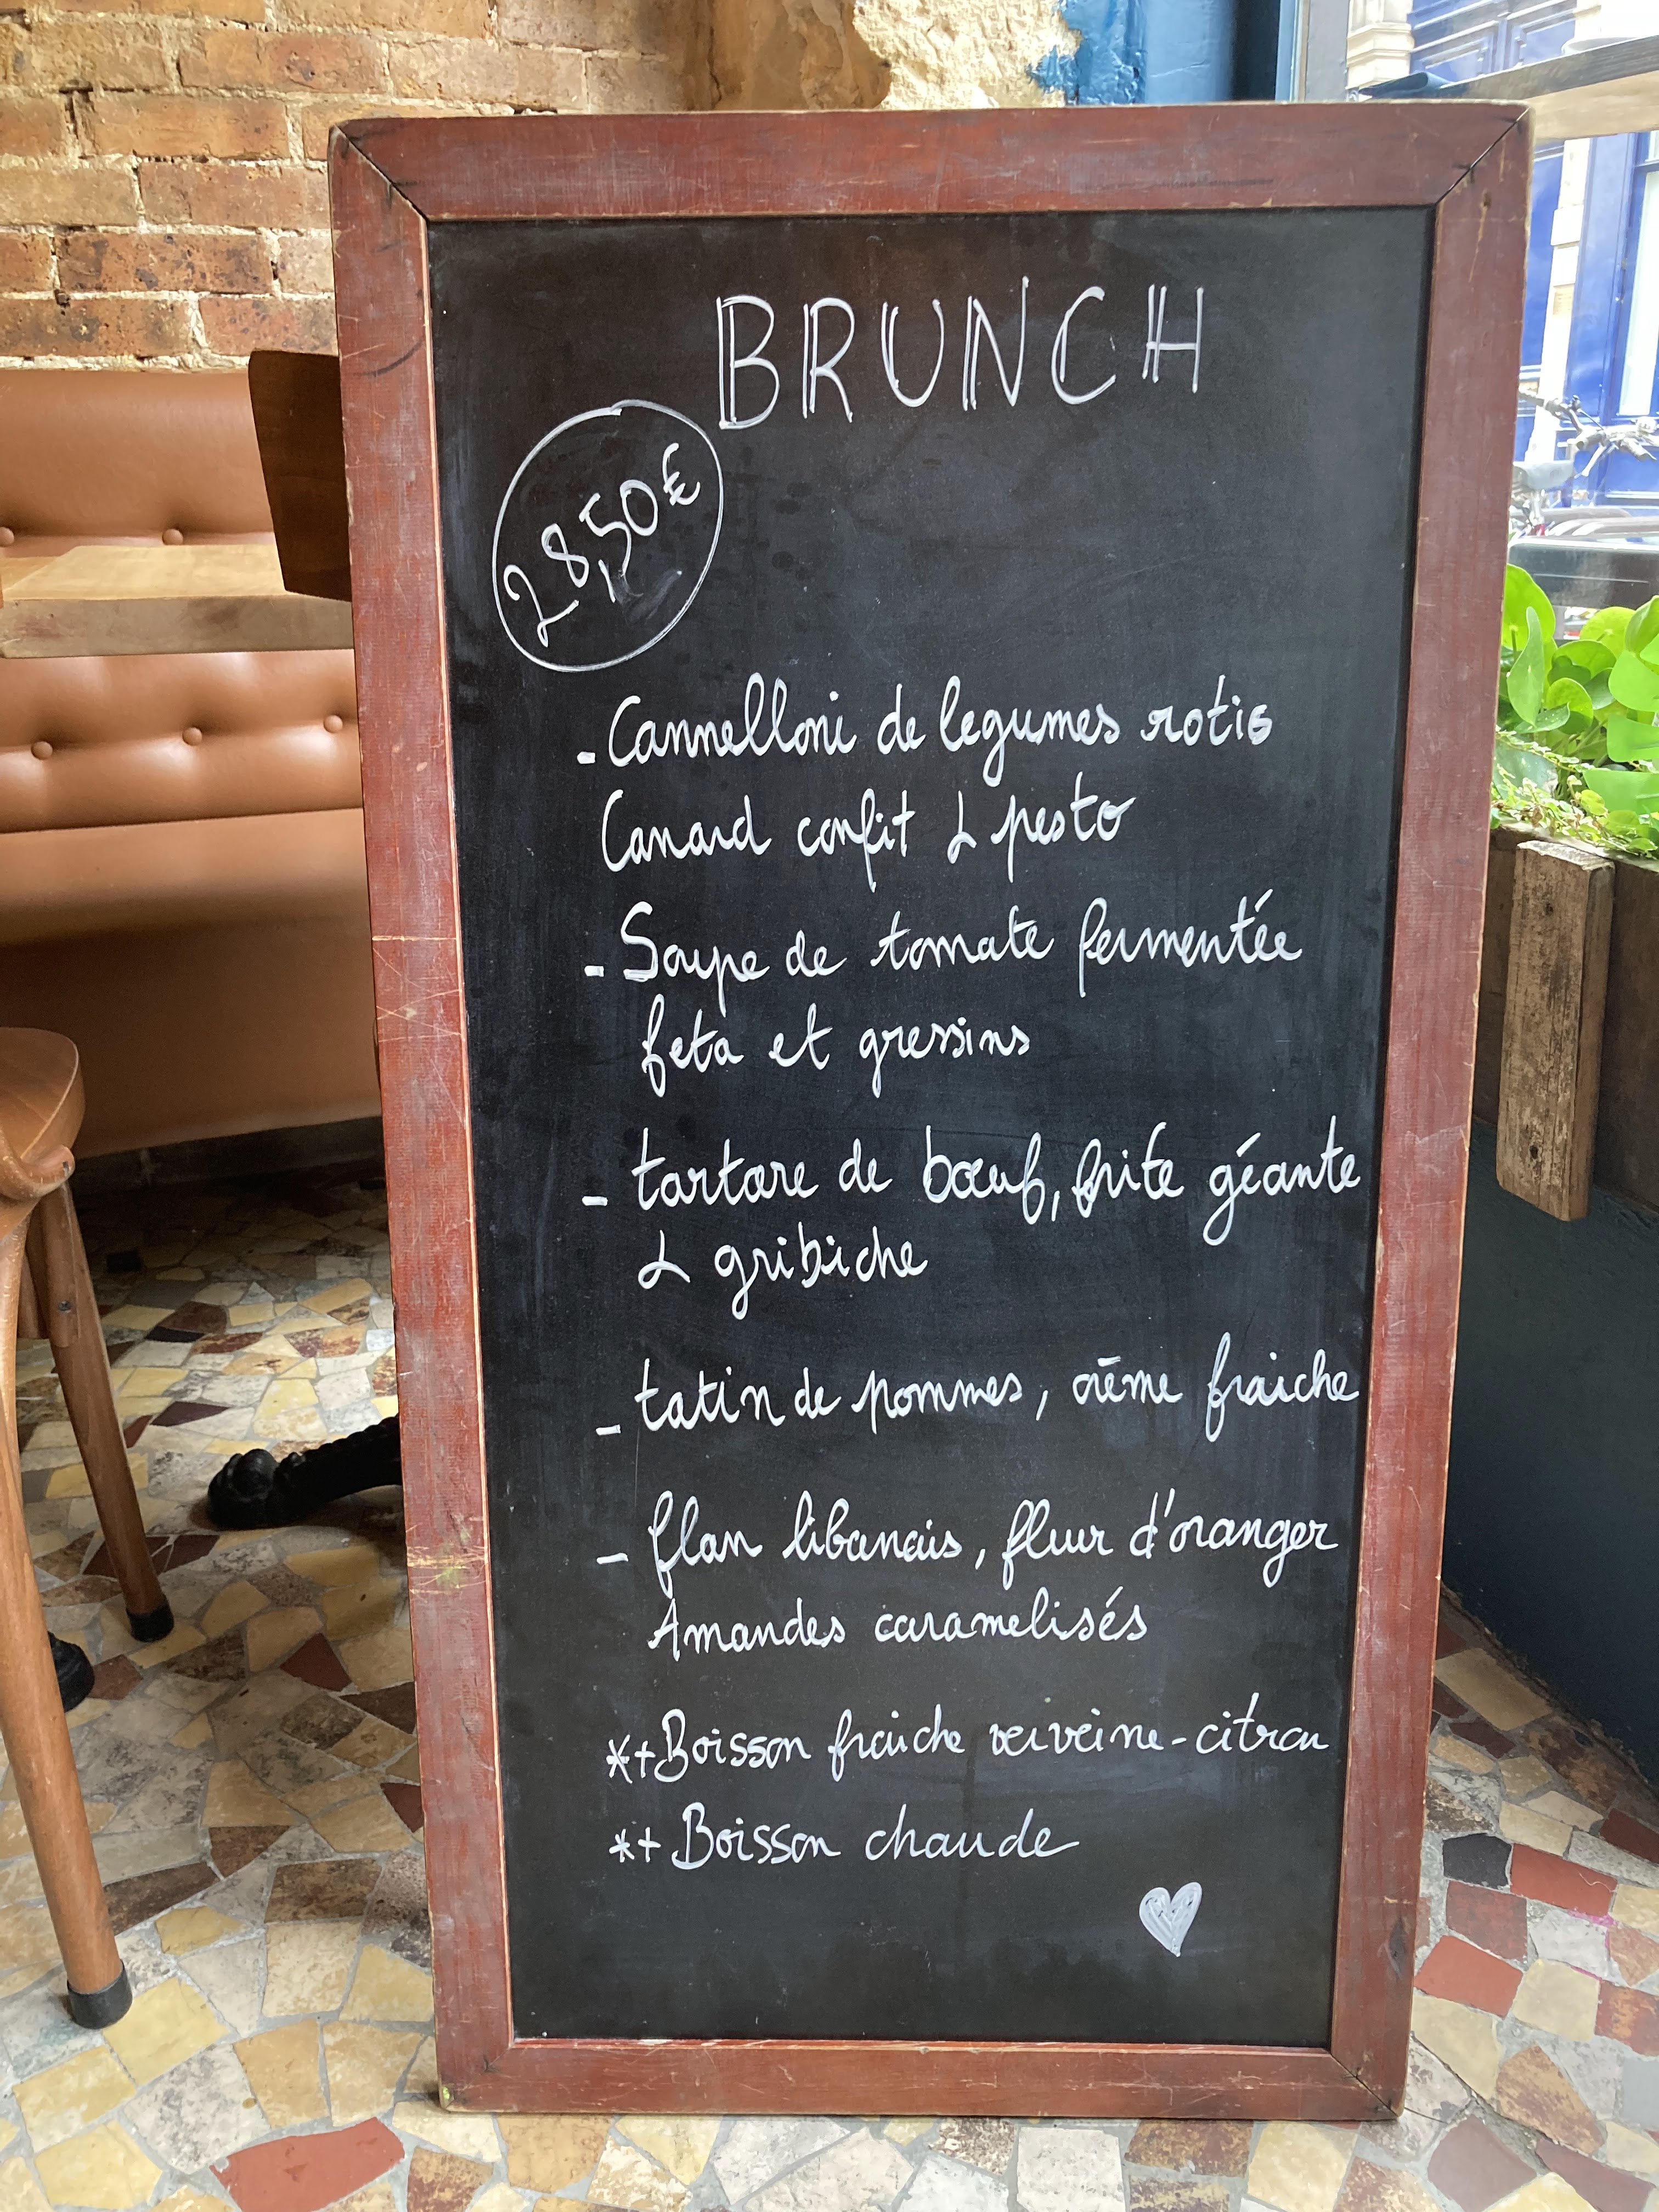 BRUNCH
28,50€
- Cannelloni de legumes rotis
Canard confit & pesto
- Soupe de tomate fermentée
feta et gressins
- tartare de bœuf, frite géante
& gribiche
- tatin de pommes, crème fraiche
- flan libanais, fleur d'oranger
Amandes caramelisés
*+Boisson fraiche verveine-citron
*+ Boisson chaude